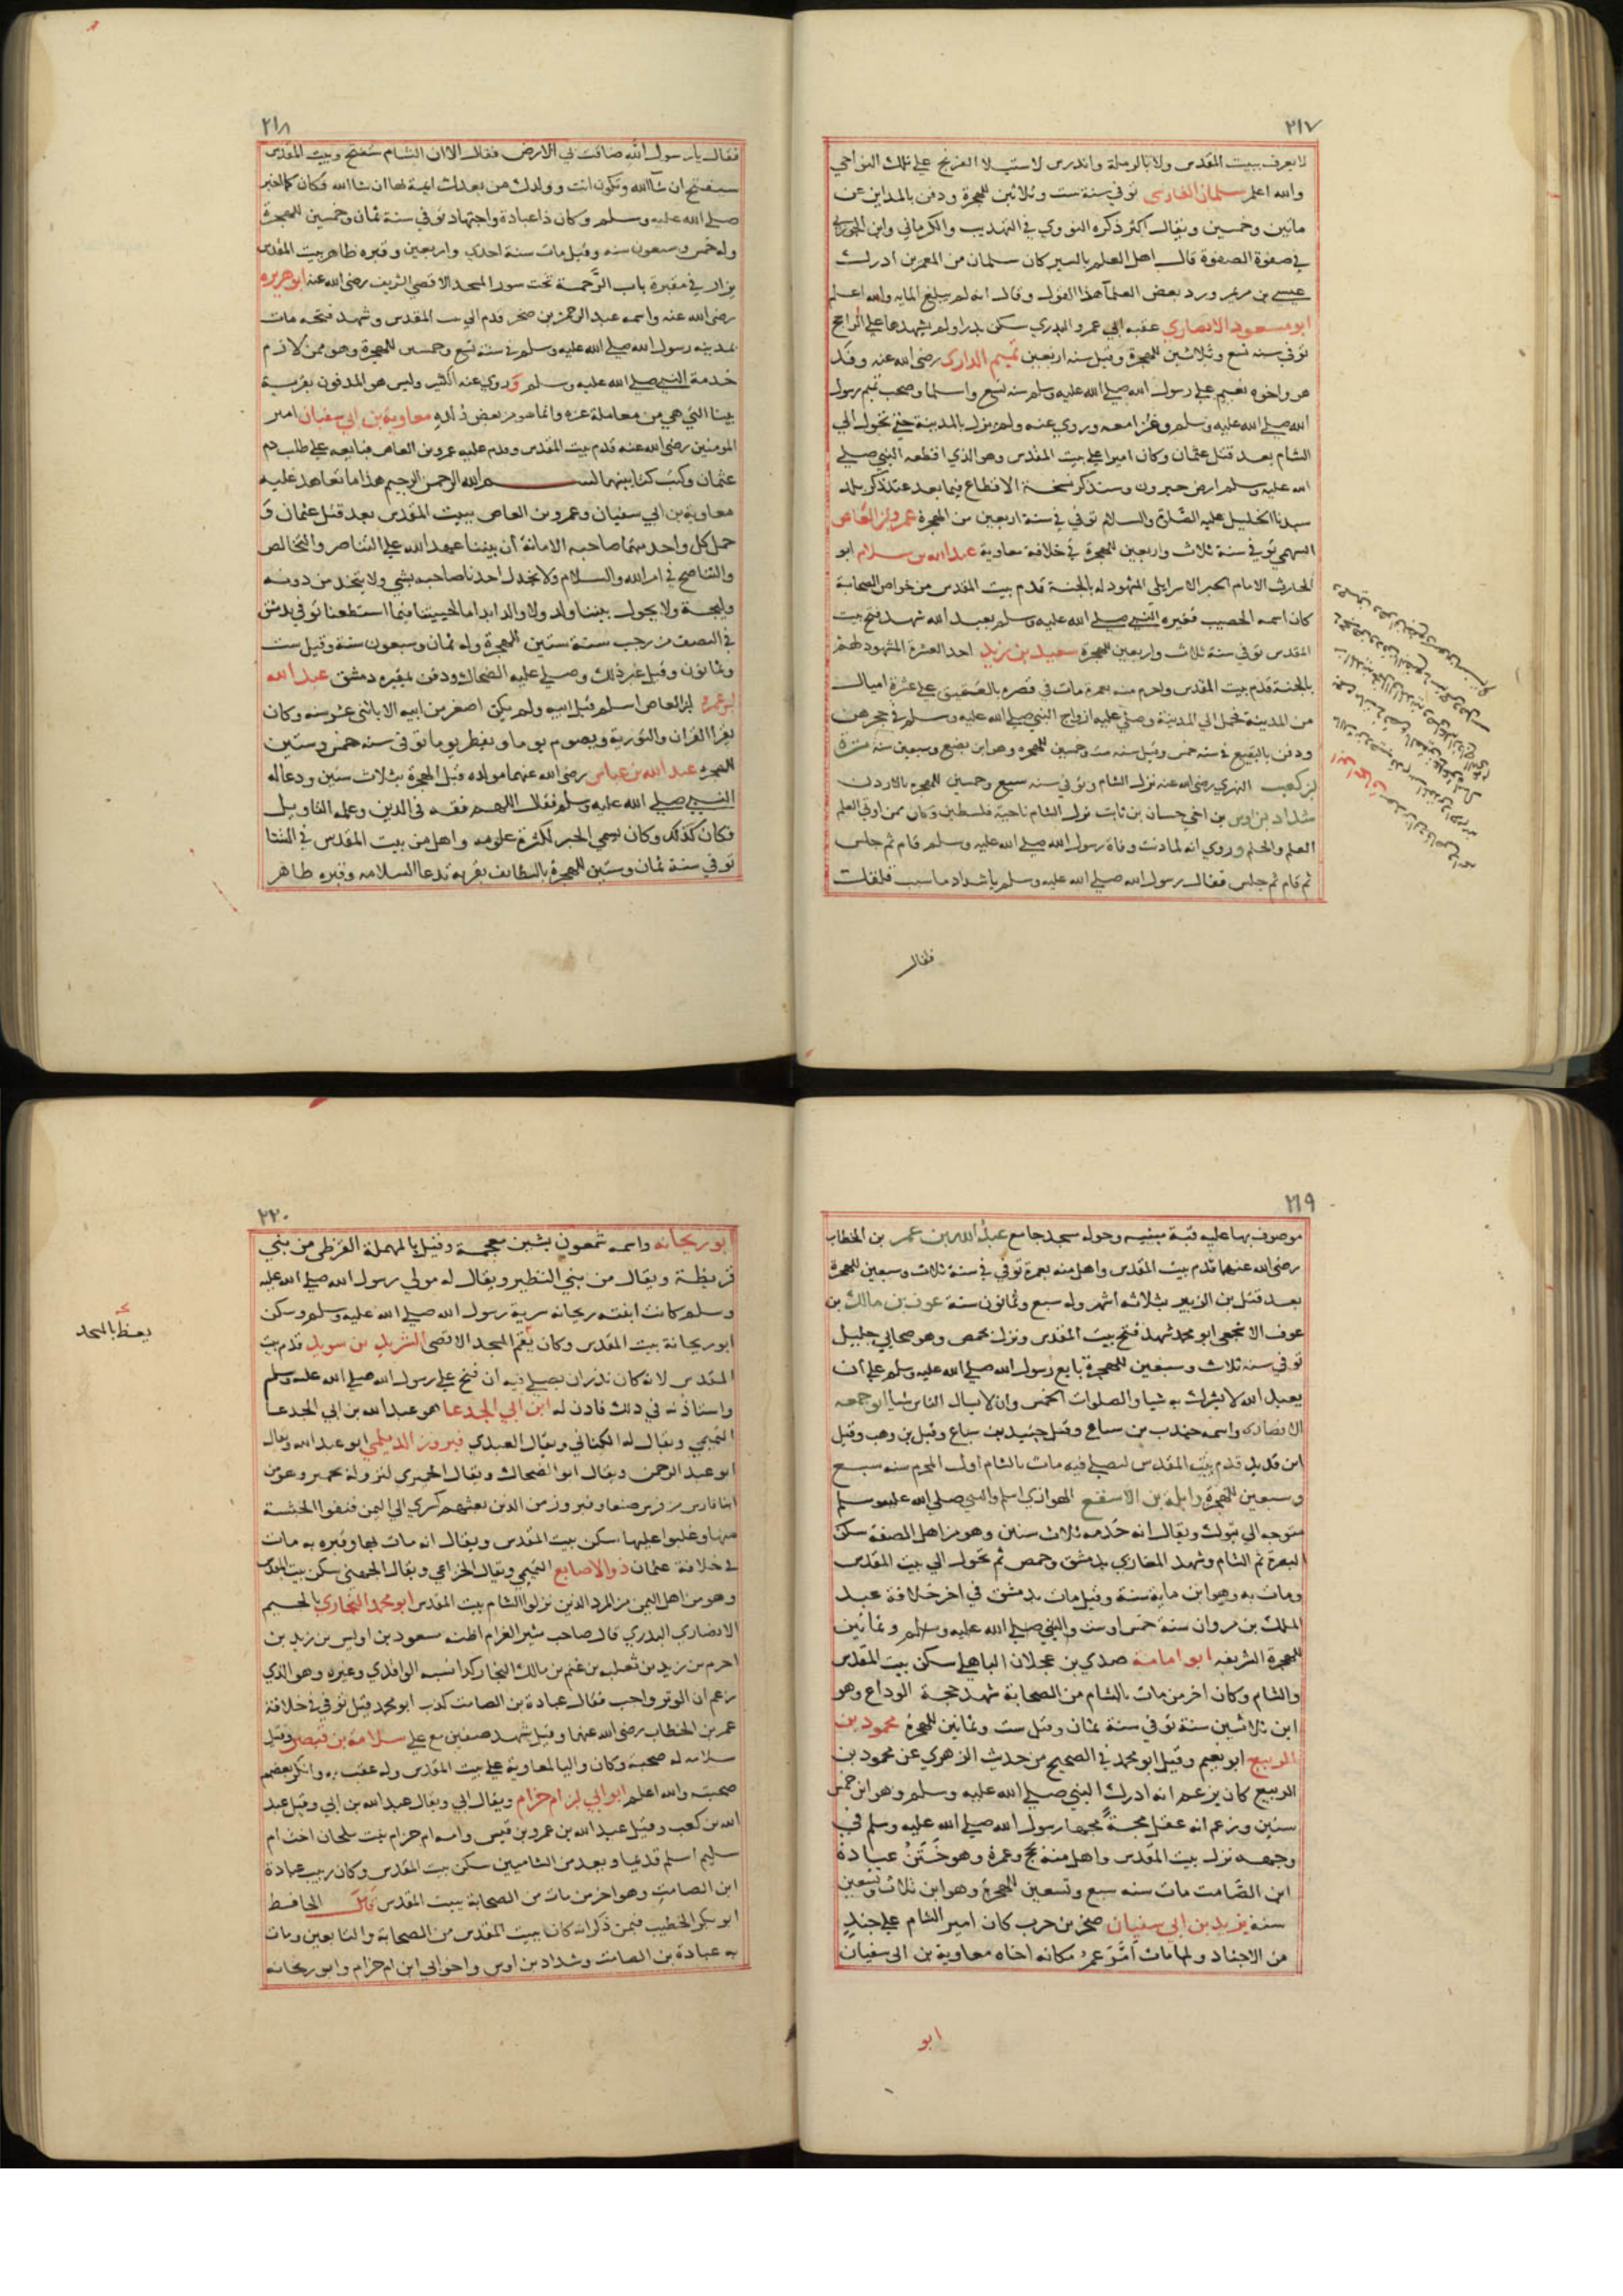 ٢١٧
لا يعرف ببيت المقدس ولا بالرملة واندرس لاستيلا الفرنج علي تلك النواحي
والله اعلم سلمان الفارسي توفي سنة ست وثلاثين للهجرة ودفن بالمداين عن
مائتين وخمسين ويقال اكثر ذكره النووي في التهذيب والكرماني وابن الجوزي
في صفوة الصفوة قال اهل العلم بالسير كان سلمان من المعمرين ادرك
عيسي بن مريم ورد بعض العلما هذا القول وقال انه لم يبلغ المايه والله اعلم
ابو مسعود الانصاري عقبه ابي عمرو البدري سكن بدرا ولم يشهدها علي الراجح
توفي سنه تسع وثلاثين للهجرة وقيل سنه اربعين تميم الداري رضي الله عنه وفد
هو واخوه نعيم علي رسول الله صلي الله عليه وسلم سنه تسع واسلما وصحب تميم رسول
الله صلي الله عليه وسلم وغزا معه وروي عنه ولم يزل بالمدينة حتي تحول الي
الشام بعد قتل عثمان وكان اميرا علي بيت المقدس وهو الذي اقطعه النبي صلي
الله عليه وسلم ارض حبرون وسنذكر نسخة الاقطاع فيما بعد عند ذكر بلد
سيدنا الخليل عليه الصلاة والسلام توفي في سنة اربعين من الهجرة عمرو بن العاص
السهمي توفي سنة ثلاث واربعين للهجرة في خلافة معاوية عبد الله بن سلام ابو
الحارث الامام الحبر الاسرايلي المشهود له بالجنة قدم بيت المقدس من خواص الصحابة
كان اسمه الحصيب فغيره النبي صلي الله عليه وسلم بعبد الله شهد فتح بيت
المقدس توفي سنة ثلاث واربعين للهجرة سعيد بن زيد احد العشرة المشهود لهم
بالجنة قدم بيت المقدس واحرم منه بعمرة مات في قصره بالعقيق علي عشرة اميال
من المدينة فحمل الي المدينة وصلي عليه ازواج النبي صلي الله عليه وسلم في حجرهن
ودفن بالبقيع في سنه خمس وقيل سنه ست وخمسين للهجره وهو ابن بضع وسبعين سنة مرة
بن كعب البهزي رضي الله عنه نزل الشام وتوفي سنه سبع وخمسين للهجره بالاردن
شداد بن اوس بن اخي حسان بن ثابت نزل الشام ناحية فلسطين وكان ممن اوتي العلم
العلم والحلم وروي انه لما دنت وفاة رسول الله صلي الله عليه وسلم قام ثم جلس
ثم قام ثم جلس فقال رسول الله صلي الله عليه وسلم يا شداد ما سبب قلقك
فقال
٢١٨
فقال يا رسول الله ضاقت بي الارض فقال الا ان الشام ستفتح وبيت المقدس
سيفتح ان شا الله وتكون انت وولدك من بعدك ائمة بها ان شا الله فكان كما اخبر
صلي الله عليه وسلم وكان ذا عبادة واجتهاد توفي سنة ثمان وخمسين للهجرة
وله خمس وسبعون سنه وقيل مات سنة احدي واربعين وقبره ظاهر بيت المقدس
يزار في مقبرة باب الرحمة تحت سور المسجد الاقصي الشريف رضي الله عنه ابو هريره
رضي الله عنه واسمه عبد الرحمن بن صخر قدم الي بيت المقدس وشهد فتحه مات
بمدينه رسول الله صلي الله عليه وسلم في سنه تسع وخمسين للهجرة وهو ممن لازم
خدمة النبي صلي الله عليه وسلم وروي عنه الكثير وليس هو المدفون بقرية
يبنا التي هي من معاملة غزه وانما هو من بعض ولده معاوية بن ابي سفيان امير
المومنين رضي الله عنه قدم بيت المقدس وقدم عليه عمرو بن العاص فبايعه علي طلب دم
عثمان وكتب كتابا بينهما بسم الله الرحمن الرحيم هذا ما تعاهد عليه
معاوية بن ابي سفيان وعمرو بن العاص ببيت المقدس بعد قتل عثمان و
حمل كل واحد منهما صاحبه الامانة أن بيننا عهد الله علي التناصر والتخالص
والتناصح في امر الله والسلام ولا يخذل احدنا صاحبه بشي ولا يتخذ من دونه
وليجة ولا يحول بيننا ولد ولا والد ابدا ما حيينا فيما استطعنا توفي بدمشق
في النصف من رجب سنة ستين للهجرة وله ثمان وسبعون سنة وقيل ست
وثمانون وقيل غير ذلك وصلي عليه الضحاك ودفن بمقبره دمشق عبد الله
بن عمرو بن العاص اسلم قبل ابيه ولم يكن اصغر من ابيه الا باثني عشر سنه وكان
يقرا القران والتوريه ويصوم يوما ويفطر يوما توفي سنه خمس وستين
للهجره عبد الله بن عباس رضي الله عنهما مولده قبل الهجرة بثلاث سنين ودعا له
النبي صلي الله عليه وسلم فقال اللهم فقهه في الدين وعلمه التاويل
فكان كذلك وكان يسمي الحبر لكثرة علومه واهل من بيت المقدس في الشتا
توفي سنة ثمان وستين للهجرة بالطايف بقريه تدعا السلامه وقبره ظاهر
٢١٩
موصوف بها عليه قبة مبنيه وحوله مسجد جامع عبد الله بن عمر بن الخطاب
رضي الله عنهما قدم بيت المقدس واهل منه بعمرة توفي في سنة ثلاث وسبعين للهجرة
بعد قتل بن الزبير بثلاثه اشهر وله سبع وثمانون سنة عوف بن مالك بن
عوف الاشجعي ابو محمد شهد فتح بيت المقدس ونزل بحمص وهو صحابي جليل
توفي سنه ثلاث وسبعين للهجرة بايع رسول الله صلي الله عليه وسلم علي أن
يعبد الله لا يشرك به شيا والصلوات الخمس وان لا يسال الناس شيا ابو جمعه
الانصاري واسمه جندب بن سباع وقيل جنيد بن سباع وقيل بن وهب وقيل
ابن فديك قدم بيت المقدس ليصلي فيه مات بالشام اول المحرم سنه سبع
وسبعين للهجرة واثلة بن الاسقع الهوازي اسلم والنبي صلي الله عليه وسلم
متوجه الي تبوك ويقال انه خدمه ثلاث سنين وهو من اهل الصفة سكن
البصرة ثم الشام وشهد المغازي بدمشق وحمص ثم تحول الي بيت المقدس
ومات به وهو ابن ماية سنة وقيل مات بدمشق في اخر خلافة عبد
الملك بن مروان سنة خمس او ست والنبي صلي الله عليه وسلم وثمانين
للهجرة الشريفه ابو امامة صدي بن عجلان الباهلي سكن بيت المقدس
والشام وكان اخر من مات بالشام من الصحابة شهد حجة الوداع وهو
ابن ثلاثين سنة توفي سنة ثمان وقيل ست وثمانين للهجرة محمود بن
الربيع ابو نعيم وقيل ابو محمد في الصحيح من حديث الزهري عن محمود بن
الربيع كان يزعم انه ادرك النبي صلي الله عليه وسلم وهو ابن خمس
سنين وزعم انه عقل مجة مجها رسول الله صلي الله عليه وسلم في
وجهه نزل بيت المقدس واهل منه بحج وعمرة وهو ختن عبادة
ابن الصامت مات سنه سبع وتسعين للهجرة وهو ابن ثلاث وتسعين
سنة يزيد بن ابي سفيان صخر بن حرب كان امير الشام علي جند
من الاجناد ولما مات أمر عمر مكانه اخاه معاوية بن ابي سفيان
ابو
٢٢٠
ابو ريحانه واسمه شمعون بشين معجمة وقيل بالمهملة القرظي من بني
قريظة ويقال من بني النظير ويقال له مولي رسول الله صلي الله عليه
وسلم كانت ابنته ريحانه سرية رسول الله صلي الله عليه وسلم وسكن
ابو ريحانة بيت المقدس وكان يقم المسجد الاقصي الشريد بن سويد قدم بيت
المقدس لانه كان نذر ان يصلي فيه ان فتح علي رسول الله صلي الله عليه وسلم
واستاذنه في ذلك فاذن له ابن ابي الجدعا هو عبد الله بن ابي الجدعا
التميمي ويقال له الكناني ويقال العبدي فيروز الديلمي ابو عبد الله ويقال
ابو عبد الرحمن ويقال ابو الضحاك ويقال الحميري لنزوله بحمير وهو من
ابنا فارس من فرس صنعا وفيروز من الذين بعثهم كسري الي اليمن فنفوا الحبشة
منها وغلبوا عليها سكن بيت المقدس ويقال انه مات بها وقبره به مات
في خلافة عثمان ذو الاصابع التميمي ويقال الخزاعي ويقال الجهني سكن بيت المقدس
وهو من اهل اليمن من المدد الذين نزلوا الشام ببيت المقدس ابو محمد النجاري بالجيم
الانصاري البدري قال صاحب مثير الغرام اظنه مسعود بن اوس بن زيد بن
اصرم بن زيد بن ثعلبه بن غنم بن مالك النجار كذا نسبه الواقدي وغيره وهو الذي
زعم ان الوتر واجب فقال عبادة بن الصامت كذب ابو محمد قيل توفي في خلافة
عمر بن الخطاب رضي الله عنهما وقيل شهد صفين مع علي سلامة بن قيصر وقيل
سلامه له صحبة وكان واليا لمعاوية علي بيت المقدس وله عقب به وانكر بعضهم
صحبته والله اعلم ابو ابي بن ام حزام ويقال ابي ويقال عبد الله بن ابي وقيل عبد
الله بن كعب وقيل عبد الله بن عمرو بن قيس وامه ام حزام بنت ملحان اخت ام
سليم اسلم قديما ويعد من الشاميين سكن بيت المقدس وكان ربيب عبادة
ابن الصامت وهو اخر من مات من الصحابة ببيت المقدس قال الحافظ
ابو بكر الخطيب فيمن ذكر انه كان ببيت المقدس من الصحابة والتابعين ومات
به عبادة بن الصامت وشداد بن اوس واخو ابي ابن ام حزام وابو ريحانه